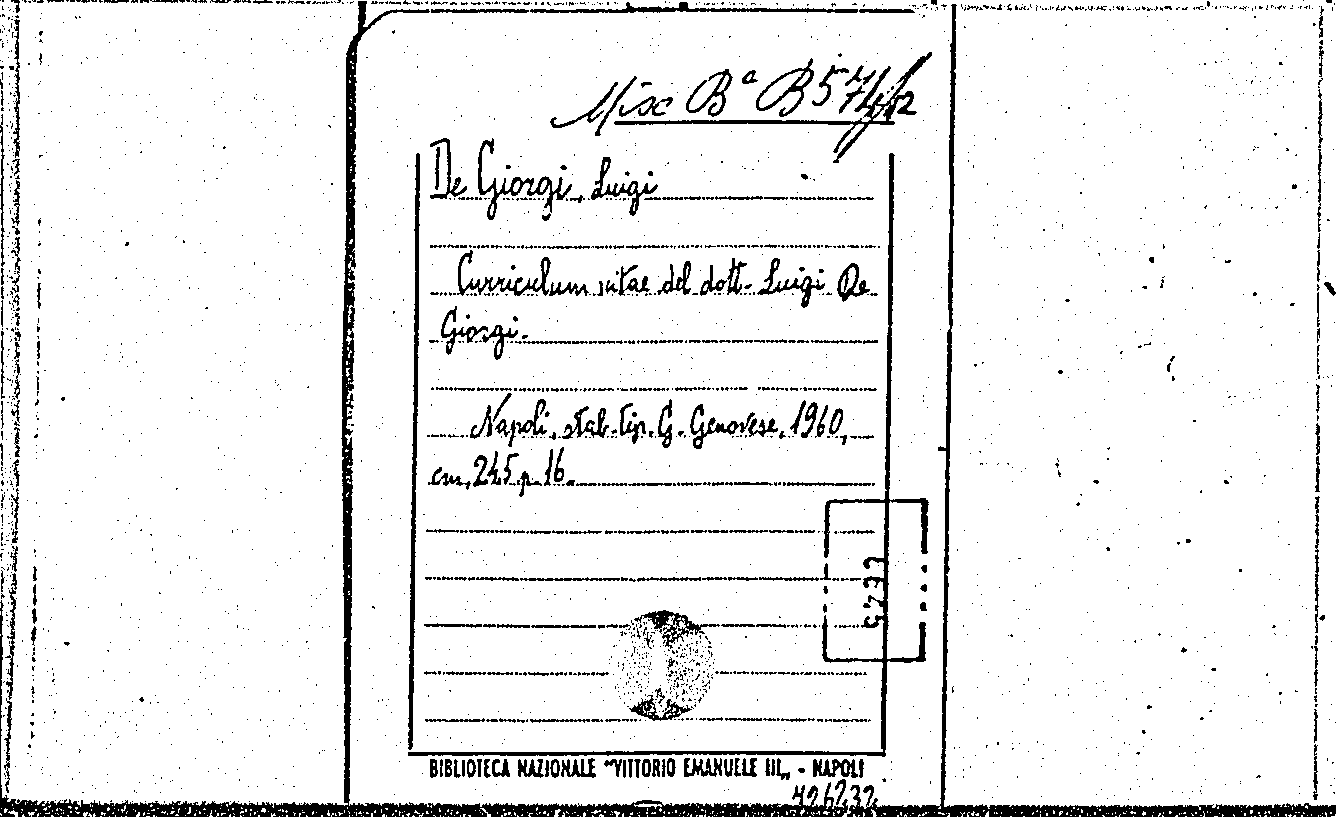 Misc Bª B 574/12
De Giorgi, Luigi
Curriculum vitae del dott. Luigi De
Giorgi.
Napoli, stab. tip. G. Genovese, 1960,
cm. 24,5 p. 16.
BIBLIOTECA NAZIONALE "VITTORIO EMANUELE III„ - NAPOLI
496232